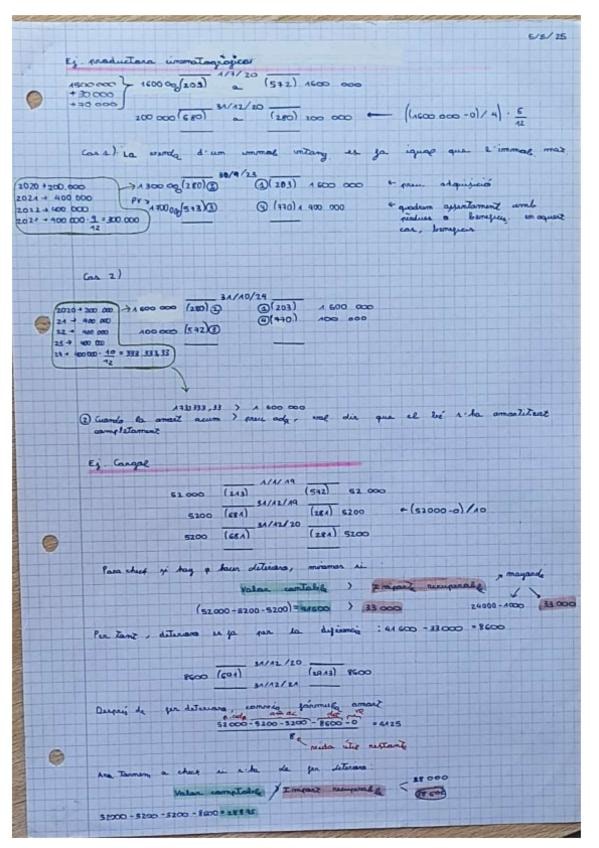 5/5/25
Ej. productora cinematogràfica
1500 000
+30 000
+70 000
1/7/20
1600 000 (203) a (572) 1600 000
31/12/20
200 000 (680) a (280) 200 000 ← ((1600 000 -0)/4) · 6/12
Cas 1) La venda d'un immob intang es fa igual que l'immob mat.
30/9/23
2020 → 200.000
2021 → 400 000
2022 → 400 000
400 000 · 9/12 = 300 000
→ 1300 000 (280) ② ① (203) 1600 000 ← preu adquisició
Pv → 1700 000 ③ ④ (770) 1 400 000 ← quadrem assentament amb
pèrdues o benefici, en aquest
cas, beneficis
Cas 2)
31/10/24
2020 → 200 000
21 → 400 000
22 → 400 000
23 → 400 000
24 → 400000 · 10/12 = 333.333,33
→ 1 600 000 (280) ② ① (203) 1 600 000
100 000 (572) ③ ④ (770) 100 000
1733333,33 > 1 600 000
② Cuando la amort acum > preu adq, vol dir que el bé s'ha amortitzat
completament
Ej. Cangal
1/1/19
52 000 (213) (572) 52 000
31/12/19
5200 (681) (281) 5200 ← (52000-0)/10
31/12/20
5200 (681) (281) 5200
Para check si hay q hacer deterioro, miramos si
Valor contable > Importe recuperable → mayor de
(52000-5200-5200) = 41600 > 33 000 24000-1000 33 000
Per tant, deterioro es fa per la diferència : 41 600 - 33000 = 8600
31/12/20
8600 (691) (2913) 8600
31/12/21
Després de fer deterioro, canvia fórmula amort
52000-5200-5200-8600-0 = 4125
8
vida útil restante
Ara tornem a check si s'ha de fer deterioro:
Valor comptable > Import recuperable
28 000
52000-5200-5200-8600 = 28875